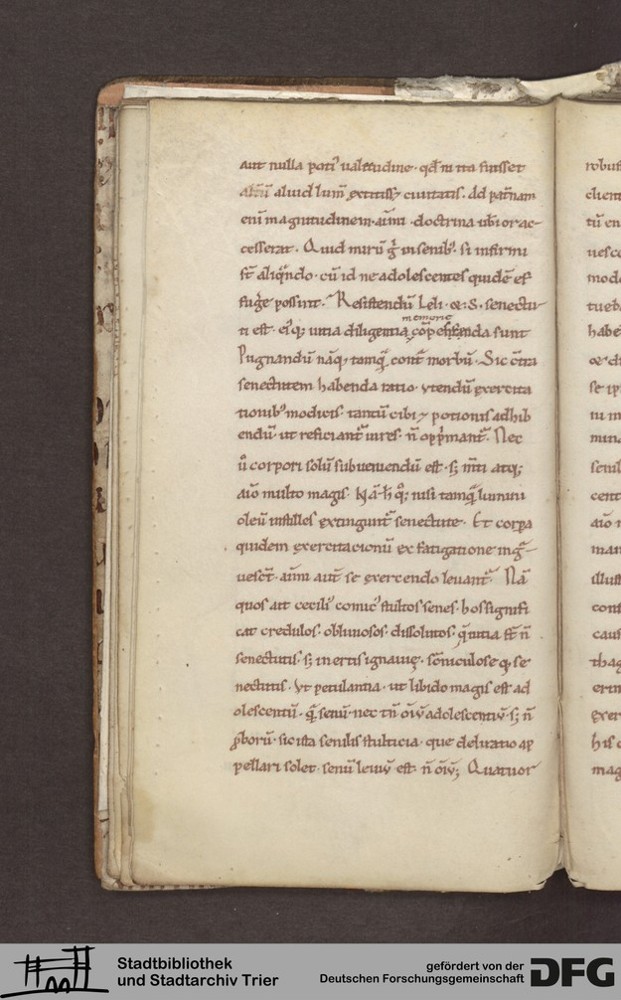 aut nulla poti' ualetudine · qđ ni ita fuisset
aliud lum̄ extitiss& ciuitatis · Ad pat̄nam
enī magnitudinem · aīmi · doctrina ub̄ior ac-
cesserat · Quid mirū g̊ in senib; si infirmi
st̄ aliq̄ndo · cū id ne adolescentes quidē ef
fug̃e possint · Resistendū Leli · & · S · senectu-
ti est · ei'q; uitia diligentia cōpensanda sunt
memorie
Pugnandū nāq; tamq̄ cont̄ morbū · Sic c̄tra
senectutem habenda ratio · vtendū exercita
tionib' modicis · tantū cibi & potionis adhib
endū · ut reficiant̄ uires · n̄ opp̄mant̄ · Nec
ů corpori solū subueniendū est · s; m̄ti atq;
aīo multo magis · Nā h̄ q̊; nisi tamq̄ lumini
oleū instilles extingunt̄ senectute · Et corpa
quidem exercitacionū & fatigatione ing̃-
uesc̄t · aīmi aut̄ se exercendo leuant̄ · Nā
quos ait cecili' comic' stultos senes · hos signifi
cat credulos · obliuiosos · dissolutos · q̄ uitia st̄ n̄
senectutis · s; inertis ignauię · sōniculose q; se
nectutis · Vt petulantia · ut libido magis est ad
olescentū · q̄ senū · nec tn̄ oīū adolescentiū · s; n̄
p̄borū · sic ista senilis stulticia · que deliratio ap
pellari solet · senū leuiū est · n̄ oīū; Quatuor
robus
clien
tū en
uesce
mod
habe
se ip
ni m
senil
cent
aīo
illus
cons
caus
thag
exer
his
mag
Stadtbibliothek
und Stadtarchiv Trier
gefördert von der
Deutschen Forschungsgemeinschaft
DFG